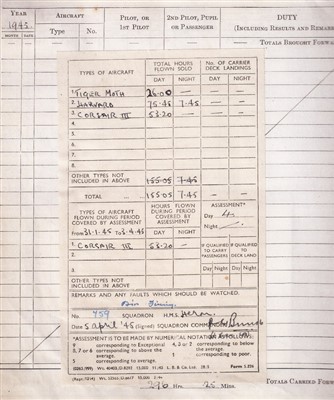 YEAR AIRCRAFT PILOT, OR 2ND PILOT, PUPIL DUTY
1945 1ST PILOT OR PASSENGER (INCLUDING RESULTS AND REMARKS
MONTH DATE Type No.
— — — — — — TOTALS BROUGHT FORWARD
TYPES OF AIRCRAFT TOTAL HOURS FLOWN SOLO No. OF CARRIER DECK LANDINGS
DAY NIGHT DAY NIGHT
1. TIGER MOTH 26.00 — — —
2. HARVARD 75.45 7.45 — —
3. CORSAIR III 53.20 — — —
4.
5.
6.
7.
8.
OTHER TYPES NOT INCLUDED IN ABOVE 155.05 7.45
TOTAL ... 155.05 7.45 — —
TYPES OF AIRCRAFT FLOWN DURING PERIOD COVERED BY ASSESSMENT HOURS FLOWN DURING PERIOD COVERED BY ASSESSMENT ASSESSMENT*
Day 4
Night
From 31.1.45 To 3.4.45 DAY NIGHT
1. CORSAIR III 53.20 — IF QUALIFIED TO CARRY PASSENGERS IF QUALIFIED TO DECK LAND
2.
3. Day Night Day Night
REMARKS AND ANY FAULTS WHICH SHOULD BE WATCHED.
No. 759 SQUADRON H.M.S. Heron
Date 5 april '45 (Signed) SQUADRON COMMANDER
*ASSESSMENT IS TO BE MADE BY NUMERAL NOTATION AS FOLLOWS:
9 corresponding to Exceptional 4, 3 or 2 corresponding to below the average.
8, 7 or 6 corresponding to above the average. 1 corresponding to poor.
5 corresponding to average.
TOTALS CARRIED FORWARD
210 Hrs. 25 Mins.